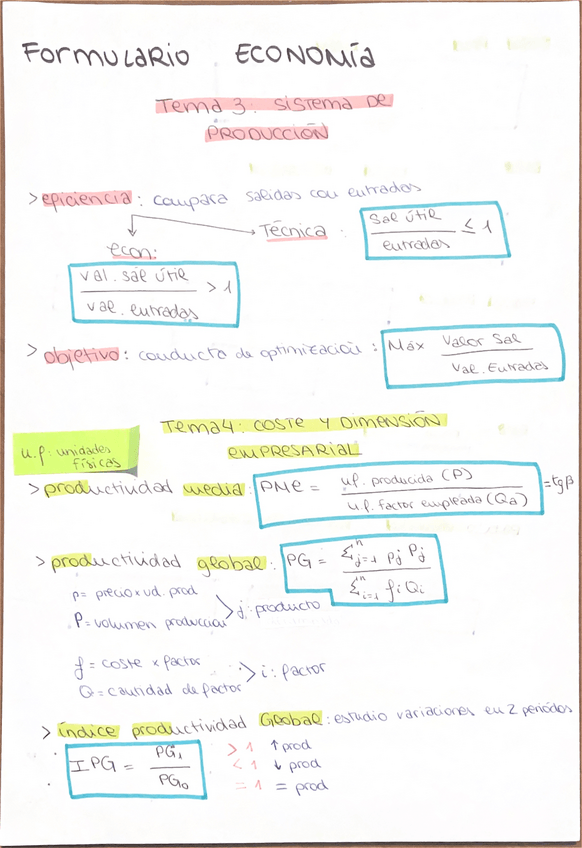 FORMULARIO ECONOMÍA
Tema 3: SISTEMA DE
PRODUCCIÓN
> eficiencia: compara salidas con entradas
econ:
val. sal útil / val. entradas > 1
Técnica: Sal útil / entradas ≤ 1
> objetivo: conducta de optimización: Máx Valor Sal / Val. Entradas
Tema 4: COSTE Y DIMENSIÓN
EMPRESARIAL
u.f: unidades
físicas
> productividad media: PMe = uf. producida (P) / u.f. factor empleada (Qa) = tg β
> productividad global: PG = Σⁿj=1 Pj Pj / Σⁿi=1 fi Qi
p = precio x ud. prod
P = volumen producción
> j: producto
f = coste x factor
Q = cantidad de factor
> i: factor
> índice productividad Global: estudio variaciones en 2 periodos
IPG = PG₁ / PG₀
> 1 ↑ prod
< 1 ↓ prod
= 1 = prod